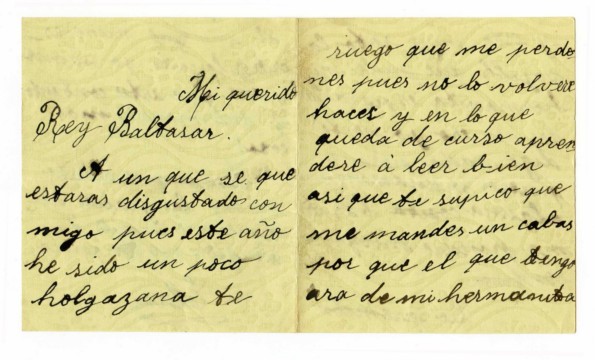 Mi querido
Rey Baltasar.
A un que se que
estaras disgustado con
migo pues este año
he sido un poco
holgazana te
ruego que me perdo
nes pues no lo volvere
hacer y en lo que
queda de curso apren
dere á leer bien
asi que te supico que
me mandes un cabas
por que el que tengo
ara de mi hermanita